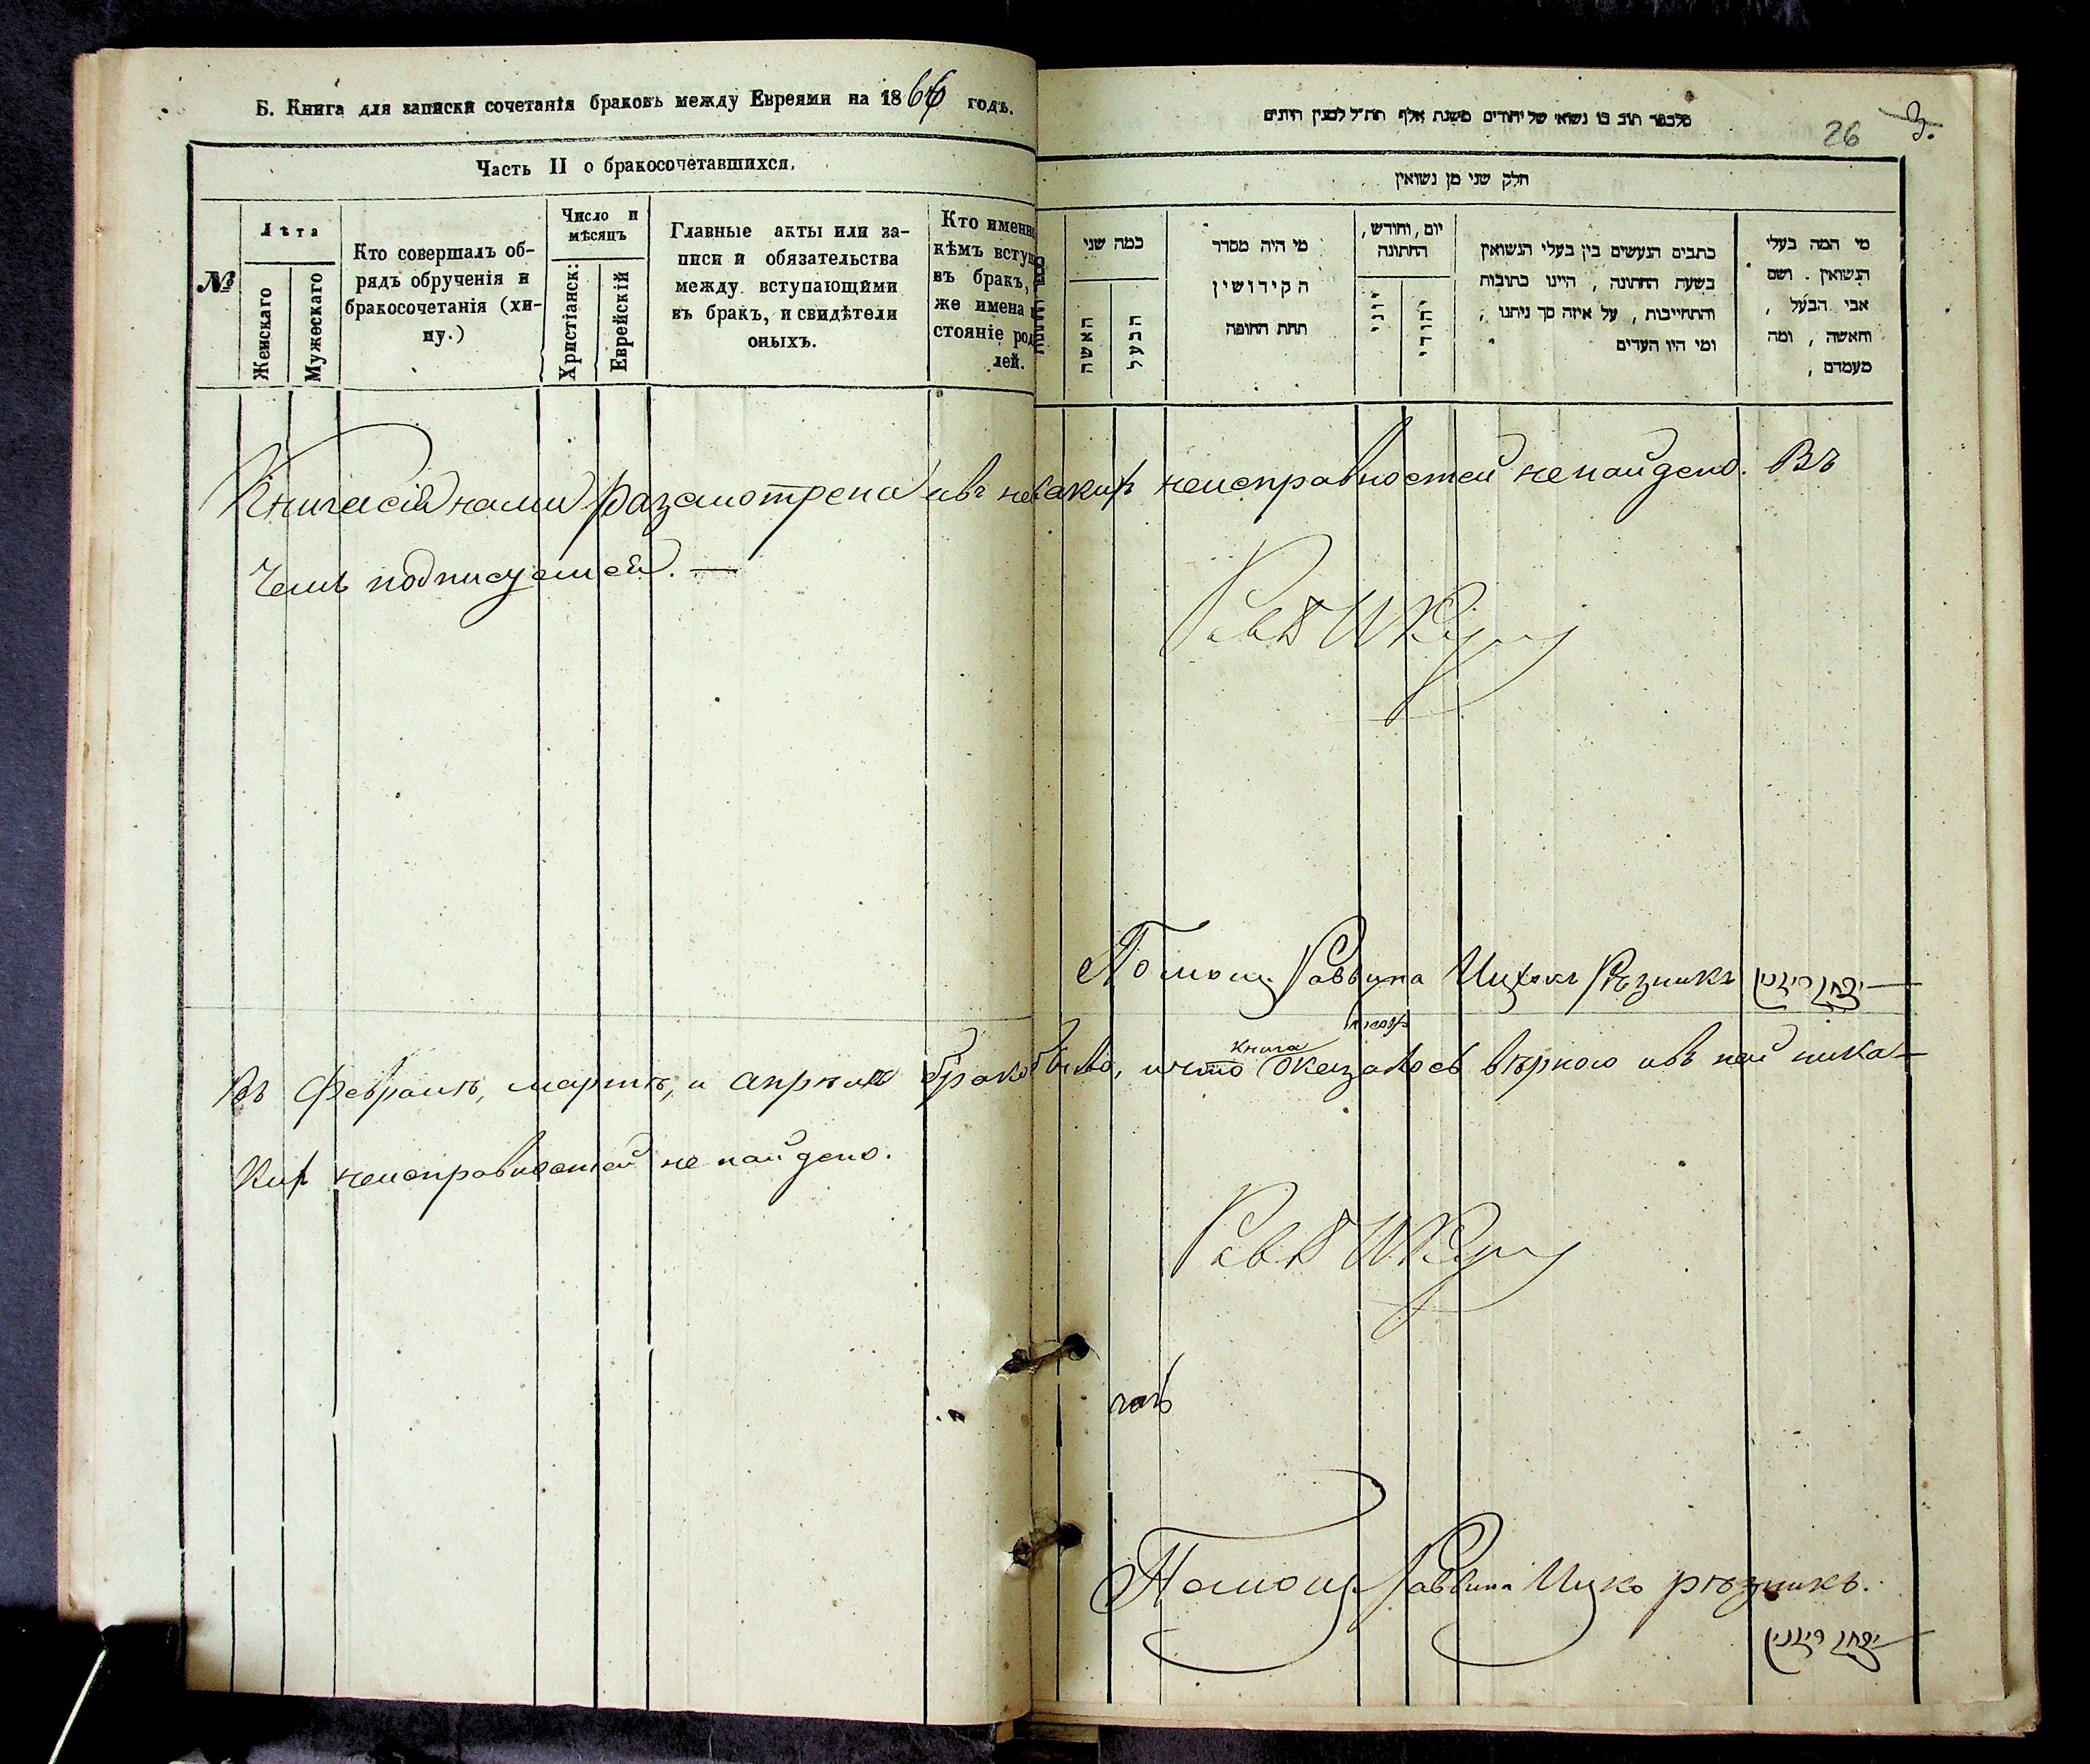 Б. Книга для записки сочетанія браковъ между Евреями на 1866 годъ.
Часть II о бракосочетавшихся.
№
Лѣта
Женскаго
Мужескаго
Кто совершалъ об-
рядъ обрученія и
бракосочетанія (хи-
ну.)
Число и
мѣсяцъ
Христіанск:
Еврейскій
Главные акты или за-
писи и обязательства
между вступающими
въ бракъ, и свидѣтели
оныхъ.
Кто именно
кѣмъ вступ
въ бракъ,
же имена и
стояніе род
лей.
26
3.
חלק שני מן נשואין
כמה שני
האשה
הבעל
מי היה מסדר
הקידושין
תחת החופה
יום, וחודש,
החתונה
יוני
יהודי
כתבים הנעשים בין בעלי הנשואין
בשעת החתונה, היינו כתובות
והתחייבות, על איזה סך ניתנו,
ומי היו העדים
מי המה בעלי
הנשואין. ושם
אבי הבעל,
והאשה, ומה
מעמדם,
Книга сія нами разсмотрена и въ не какихъ неисправностей ненайдено. Въ
Чемъ подписуемся. —
Помощ. Раввина Ицхокъ Рѣзникъ
книга
Въ Февралѣ, мартѣ, и апрѣлѣ браковъ оказалось вѣрною и въ ней ника-
кихъ неисправностей не найдено.
Помощ. Раввина Ицко рѣзникъ.